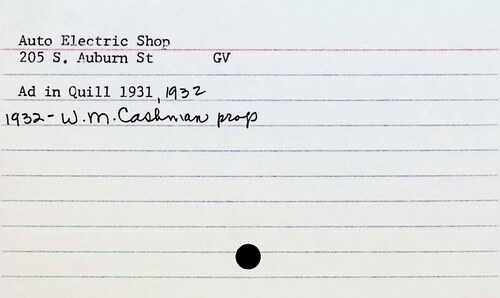 Auto Electric Shop
205 S. Auburn St GV
Ad in Quill 1931, 1932
1932- W.M. Cashman prop